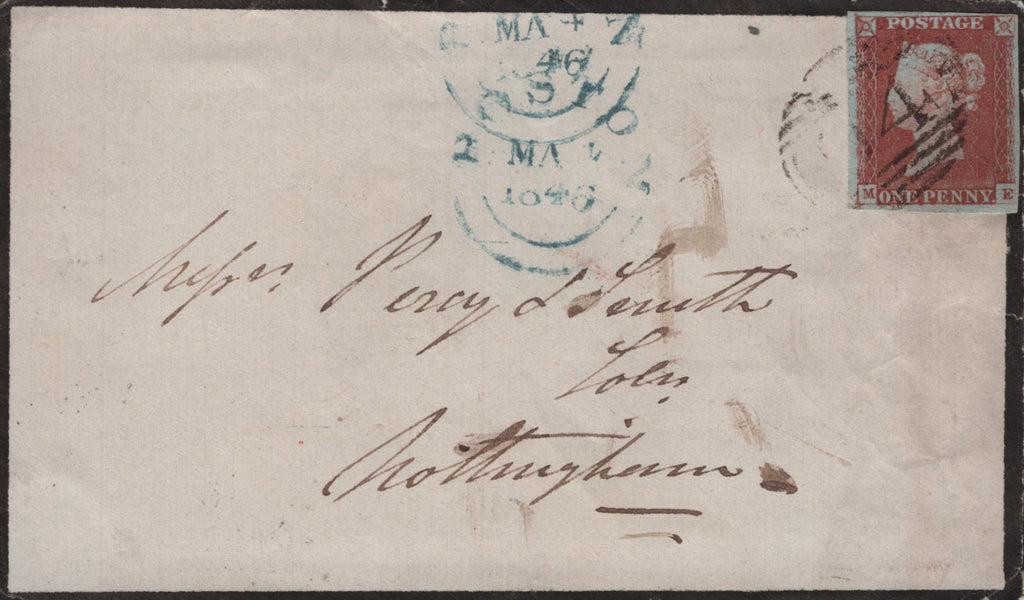 MA 4
46
MA 4
1846
POSTAGE
4
M E
ONE PENNY.
Messrs Percy & Smith
Solrs
Nottingham